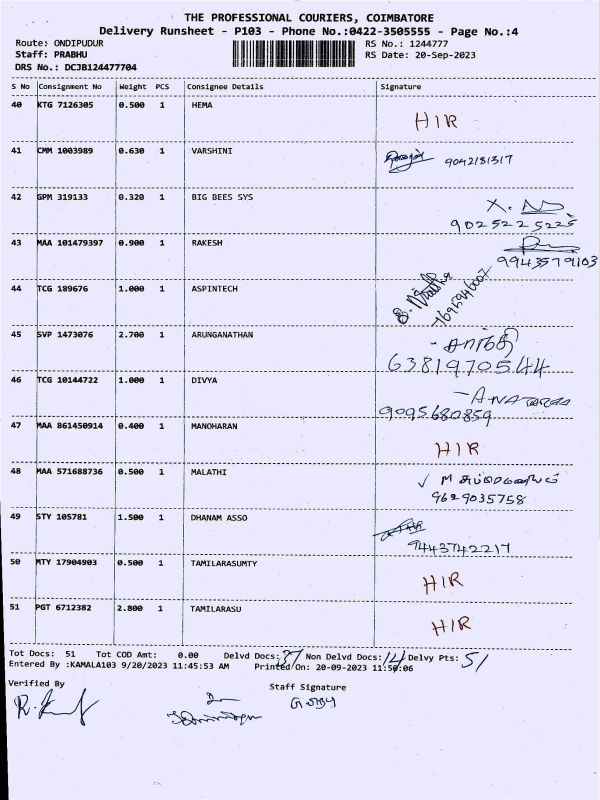 THE PROFESSIONAL COURIERS, COIMBATORE
Delivery Runsheet - P103 - Phone No.:0422-3505555 - Page No.:4
Route: ONDIPUDUR RS No.: 1244777
Staff: PRABHU RS Date: 20-Sep-2023
DRS No.: DCJB124477704
S No Consignment No Weight PCS Consignee Details Signature
40 KTG 7126305 0.500 1 HEMA
HIR
41 CMM 1003989 0.630 1 VARSHINI
9042181317
42 GPM 319133 0.320 1 BIG BEES SYS
9025225225
43 MAA 101479397 0.900 1 RAKESH
9943579103
44 TCG 189676 1.000 1 ASPINTECH
7695946007
45 SVP 1473076 2.700 1 ARUNGANATHAN
6381970544
46 TCG 10144722 1.000 1 DIVYA
9095680859
47 MAA 861450914 0.400 1 MANOHARAN
HIR
48 MAA 571688736 0.500 1 MALATHI
9629035758
49 STY 105781 1.500 1 DHANAM ASSO
9443742217
50 MTY 17904903 0.500 1 TAMILARASUMTY
HIR
51 PGT 6712382 2.800 1 TAMILARASU
HIR
Tot Docs: 51 Tot COD Amt: 0.00 Delvd Docs: 37 Non Delvd Docs: 14 Delvy Pts: 51
Entered By :KAMALA103 9/20/2023 11:45:53 AM Printed On: 20-09-2023 11:50:06
Verified By Staff Signature